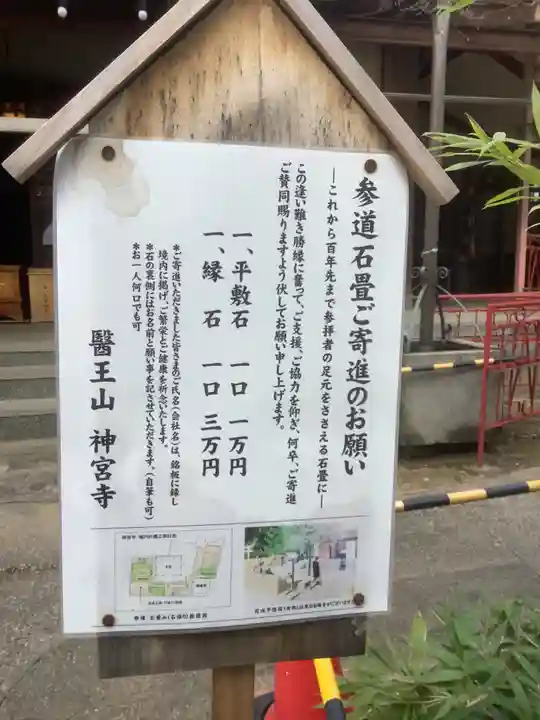 参道石畳ご寄進のお願い
―これから百年先まで参拝者の足元をささえる石畳に―
この逢い難き勝縁に奮って、ご支援、ご協力を仰ぎ、何卒、ご寄進
ご賛同賜りますよう伏してお願い申し上げます。
一、平敷石 一口 一万円
一、縁石 一口 三万円
*ご寄進いただきました皆さまのご氏名(会社名)は、銘板に録し
境内に掲げ、ご繁栄とご健康を祈念いたします。
*石の裏側にはお名前と願い事を記させていただきます。(自筆も可)
*お一人何口でも可
醫王山 神宮寺